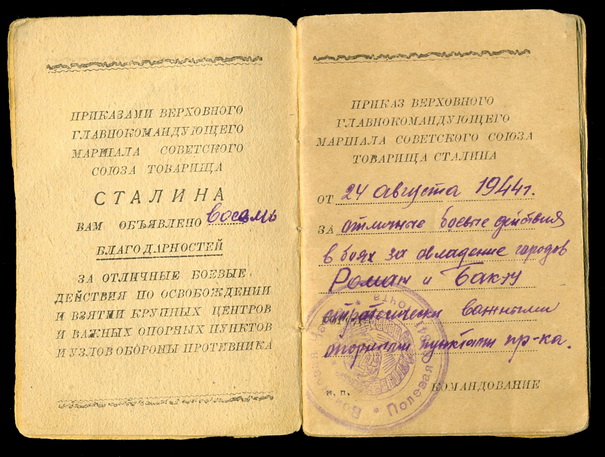 ПРИКАЗАМИ ВЕРХОВНОГО
ГЛАВНОКОМАНДУЮЩЕГО
МАРШАЛА СОВЕТСКОГО
СОЮЗА ТОВАРИЩА
СТАЛИНА
ВАМ ОБЪЯВЛЕНО восемь
БЛАГОДАРНОСТЕЙ
ЗА ОТЛИЧНЫЕ БОЕВЫЕ
ДЕЙСТВИЯ ПО ОСВОБОЖДЕНИИ
И ВЗЯТИИ КРУПНЫХ ЦЕНТРОВ
И ВАЖНЫХ ОПОРНЫХ ПУНКТОВ
И УЗЛОВ ОБОРОНЫ ПРОТИВНИКА
ПРИКАЗ ВЕРХОВНОГО
ГЛАВНОКОМАНДУЮЩЕГО
МАРШАЛА СОВЕТСКОГО СОЮЗА
ТОВАРИЩА СТАЛИНА
ОТ 24 августа 1944г.
ЗА отличные боевые действия
в боях за овладение городов
Роман и Бакэу
стратегически важными
опорными пунктами пр-ка.
М. П. Полевая
КОМАНДОВАНИЕ